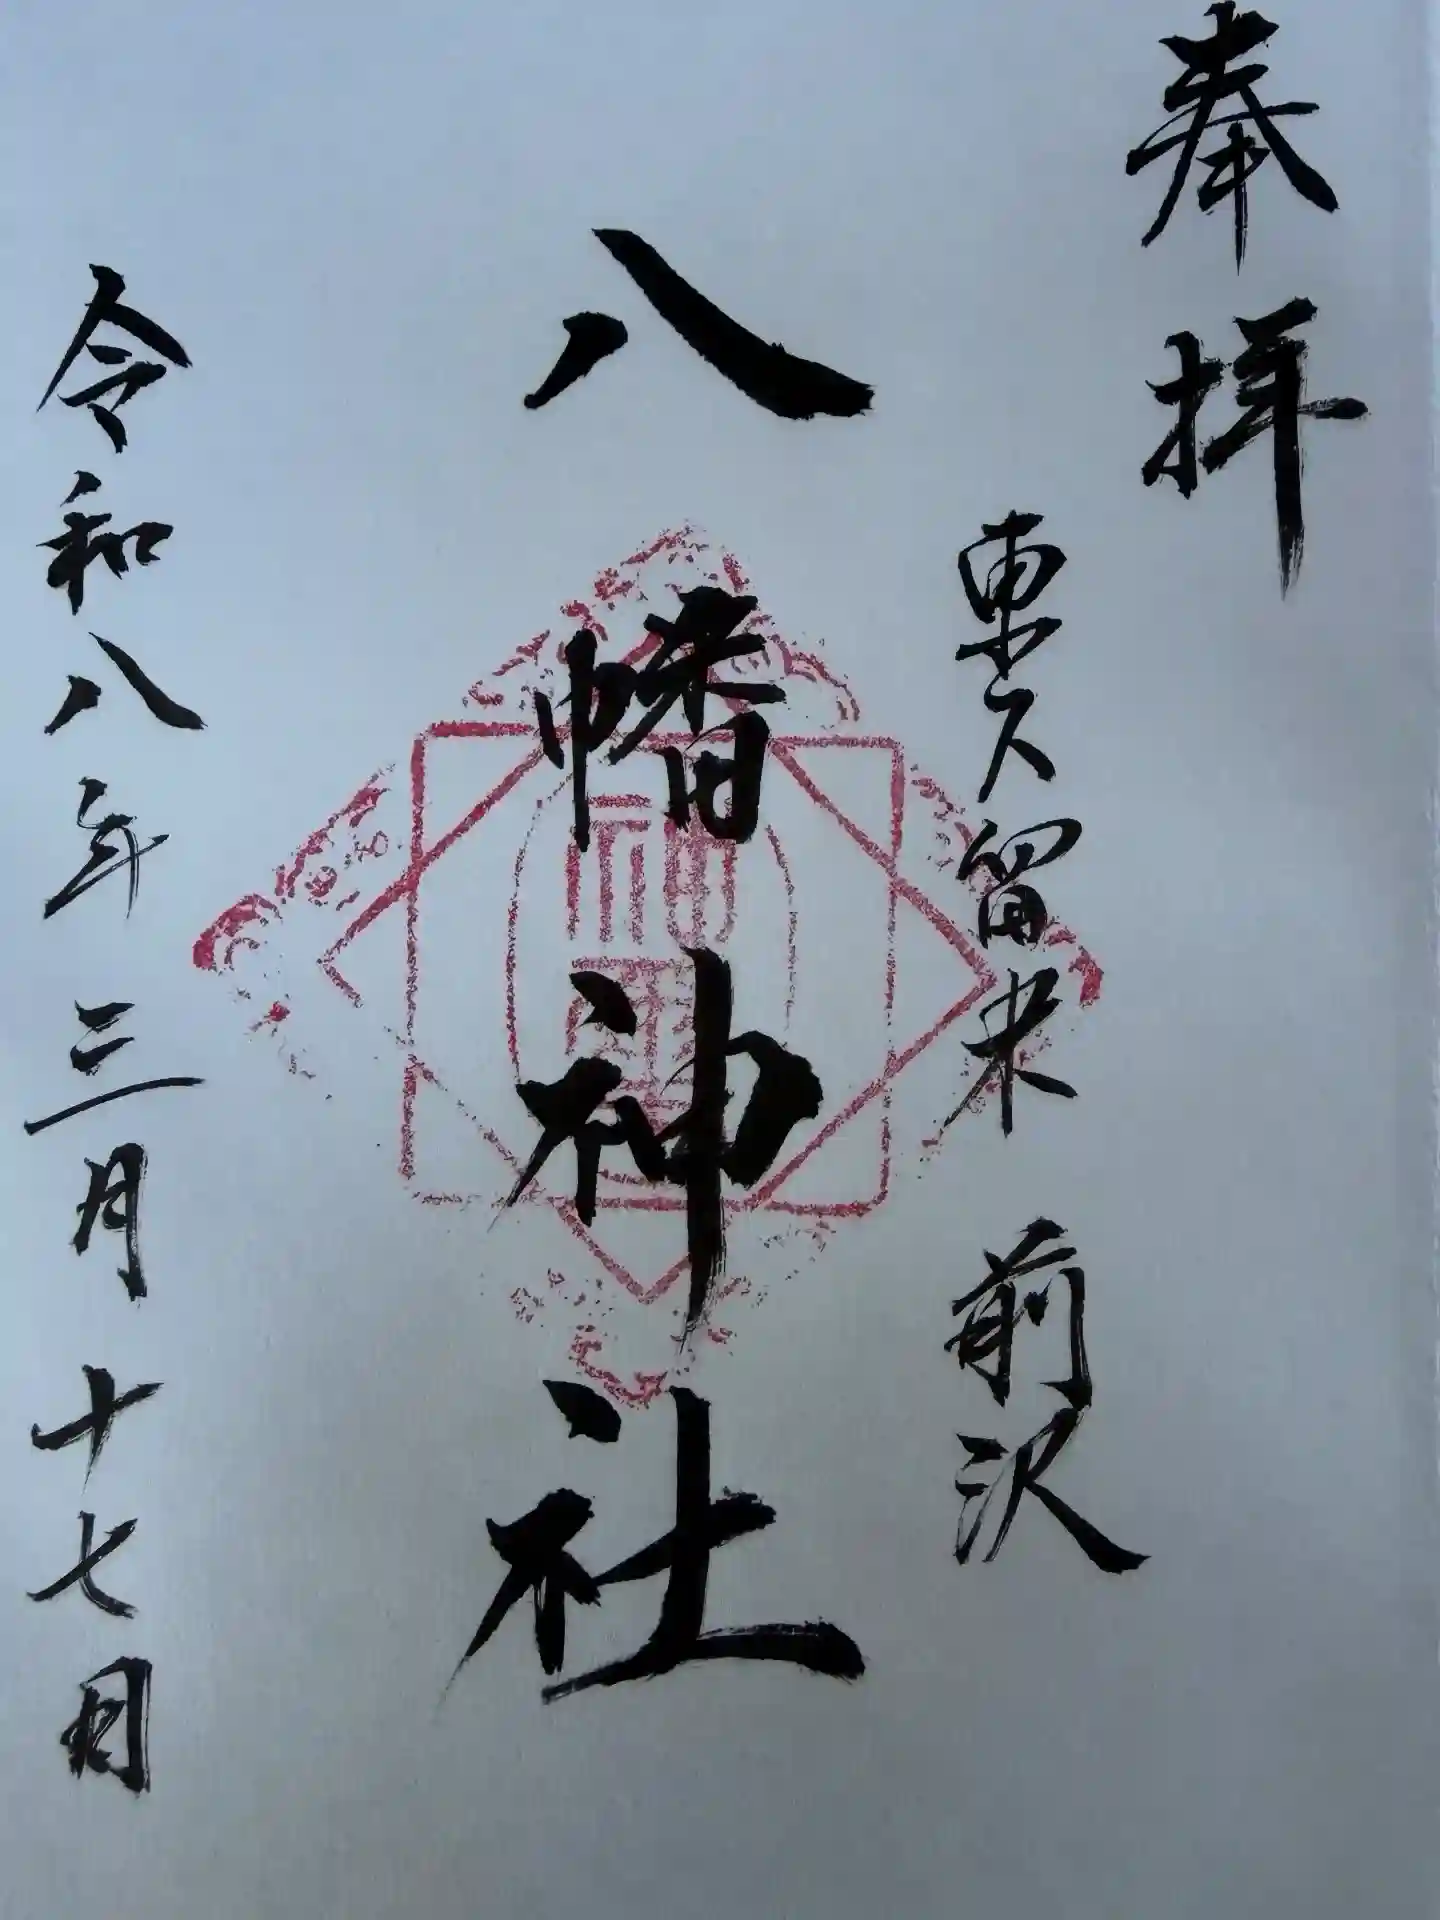 奉拝
東久留米 前沢
八幡神社
令和八年三月十七日